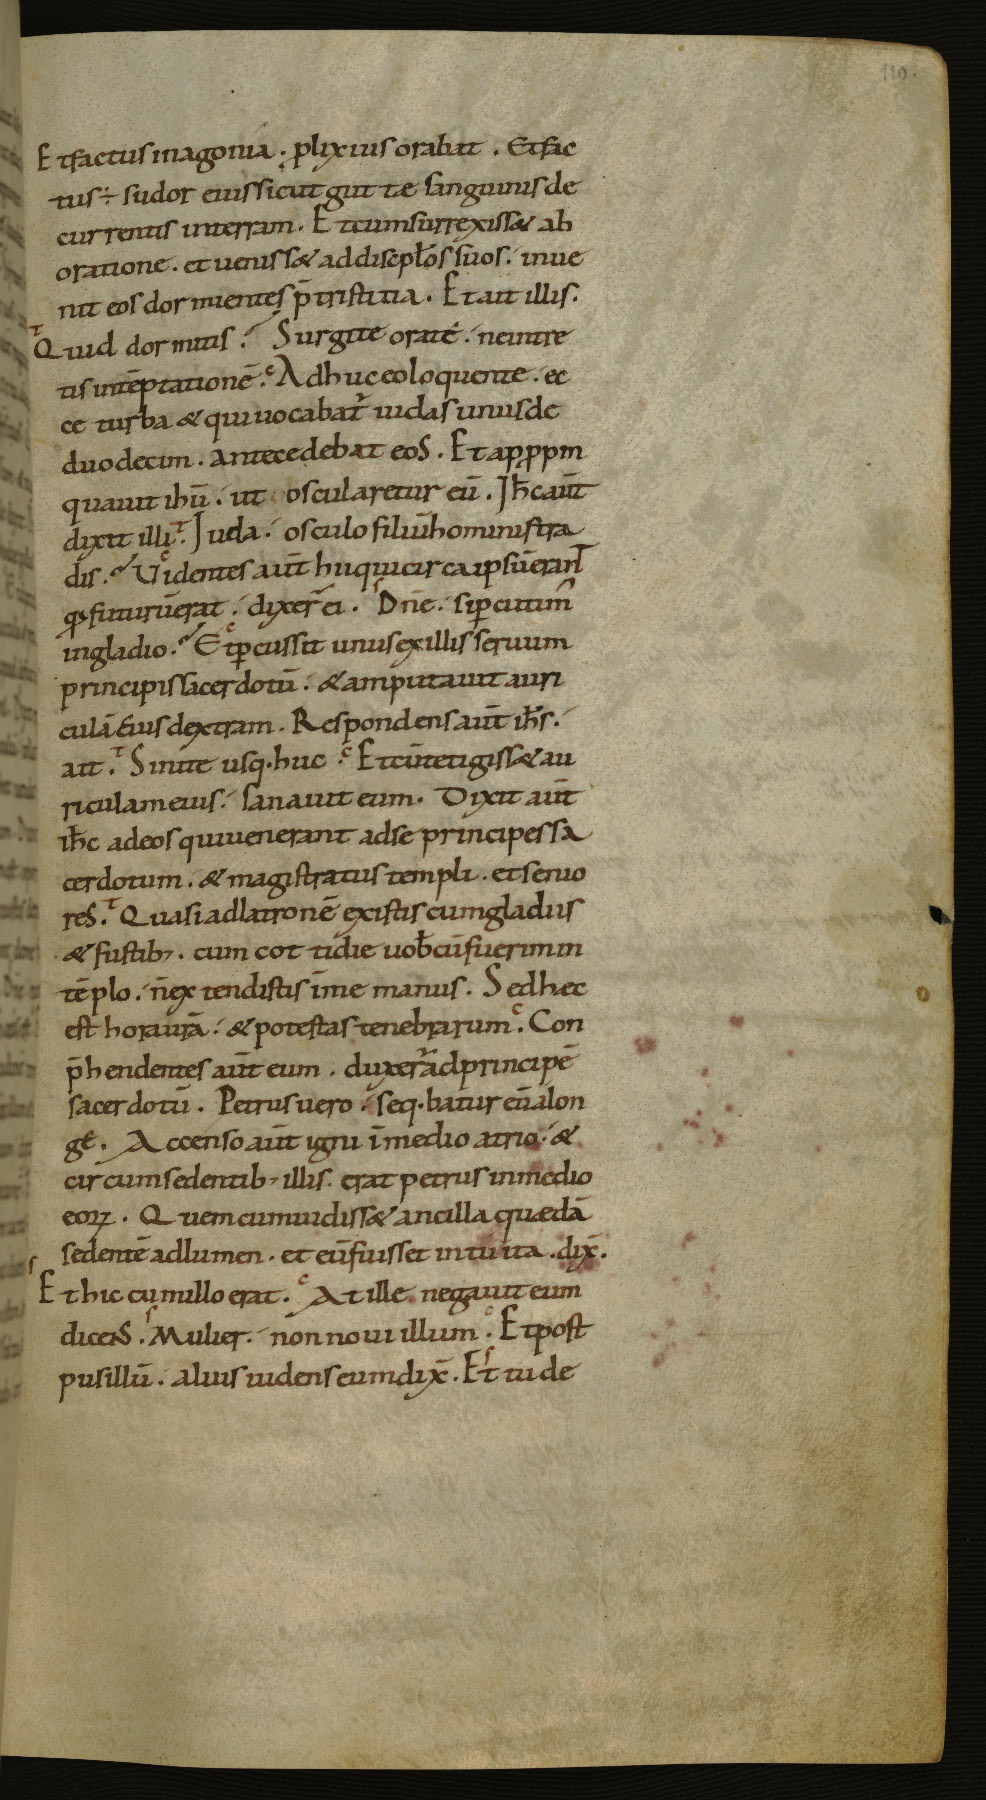 110.
Et factus in agonia . plixius orabat . Et fac
tus ÷ sudor eius sicut guttæ sanguinis de
currentis in terram . Et cum surrexiss& ab
oratione . et ueniss& ad discipłos suos . inue
nit eos dormientes p̄ tristitia . Et ait illis .
Quid dormitis . Surgite orate . ne intre
tis in tēptationē . Adhuc eo loquente . ec
ce turba & qui uocabat̄ iudas unus de
duodecim . antecedebat eos . Et appropin
quauit ihū . ut oscularetur eū . Ihc̄ aut̄
dixit illi . Iuda . osculo filiū hominis tra
dis . Videntes aut̄ hi qui circa ipsū erant
qd futurū erat . dixer̄ ei . Dn̄e . si percutim᾽
in gladio . Et percussit unus ex illis seruum
principis sacerdotū . & amputauit auri
culā eius dextram . Respondens aut̄ ihs̄ .
ait . Sinite usq . huc . Et cū tetigiss& au
riculam eius . sanauit eum . Dixit aut̄
ihc̄ ad eos qui uenerant ad se principes sa
cerdotum . & magistratus templi . et senio
res . Quasi ad latronē existis cum gladiis
& fustib; . cum cottidie uobcū fuerim in
tēplo . n̄ extendistis in me manus . Sed hec
est hora urā . & potestas tenebrarum . Con
p̄hendentes aut̄ eum . duxer̄ ad principē
sacerdotū . Petrus uero . seq . batur eū a lon
ge . Accenso aut̄ igni ī medio atrio . &
circumsedentib; illis . erat petrus in medio
eoꝝ . Quem cum uidiss& ancilla quædā
sedentē ad lumen . et eū fuisset intuita . dix̄ .
Et hic cum illo erat . At ille negauit eum
dicens . Mulier . non noui illum . Et post
pusillū . alius uidens eum dix̄ . Et tu de